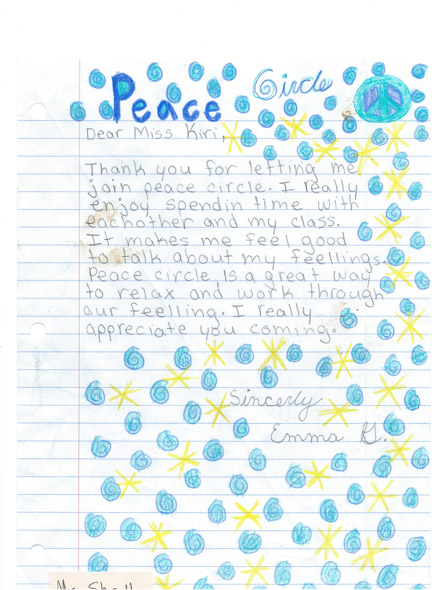 Peace Circle
Dear Miss Kiri,
Thank you for letting me
join peace circle. I really
enjoy spendin time with
eachother and my class.
It makes me feel good
to talk about my feellings.
Peace circle Is a great way
to relax and work through
our feelling. I really
appreciate you coming.
Sincerly
Emma G.